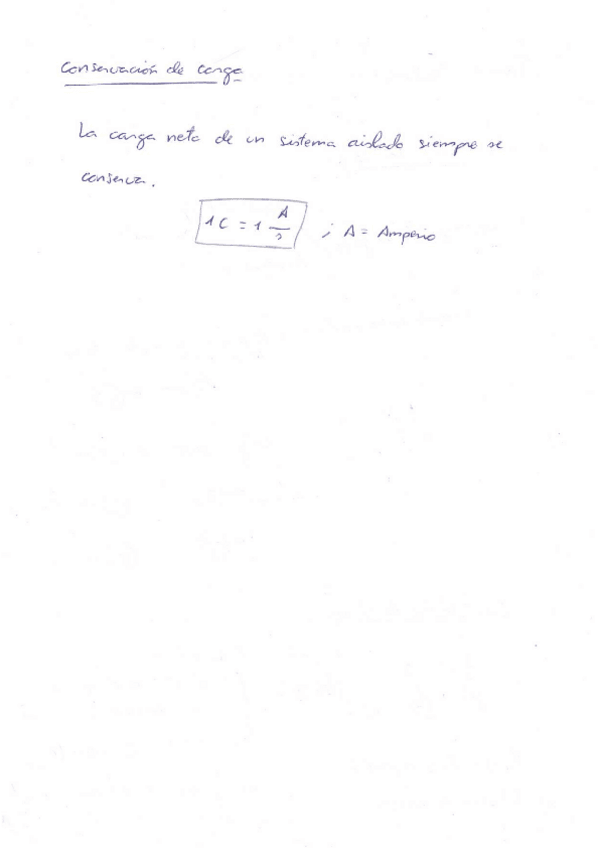 Conservación de carga
La carga neta de un sistema aislado siempre se
conserva.
1 C = 1 A/s ; A = Amperio